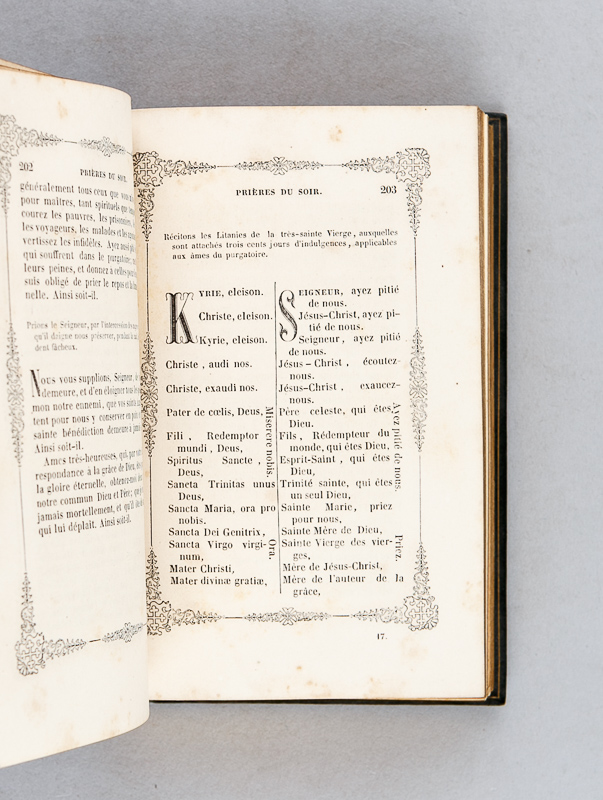 202
PRIÈRES DU SOIR.
généralement tous ceux que
pour maîtres, tant spirituels que
courez les pauvres, les prisonniers,
les voyageurs, les malades et les
vertissez les infidèles. Ayez aussi
qui souffrent dans le purgatoire;
leurs peines, et donnez à celles pour
suis obligé de prier le repos et la
nelle. Ainsi soit-il.
Prions le Seigneur, par l'intercession
qu'il daigne nous préserver, pendant
dent fâcheux.
Nous vous supplions, Seigneur, de
demeure, et d'en éloigner tous
mon notre ennemi, que vos saints
tent pour nous y conserver en paix
sainte bénédiction demeure
Ainsi soit-il.
Ames très-heureuses, qui, par
respondance à la grâce de Dieu,
la gloire éternelle, obtenez-moi
notre commun Dieu et Père;
jamais mortellement, et qu'il
qui lui déplaît. Ainsi soit-il.
PRIÈRES DU SOIR.
203
Récitons les Litanies de la très-sainte Vierge, auxquelles
sont attachés trois cents jours d'indulgences, applicables
aux âmes du purgatoire.
KYRIE, eleison.
Christe, eleison.
Kyrie, eleison.
Christe, audi nos.
Christe, exaudi nos.
Pater de cœlis, Deus,
Fili, Redemptor
mundi, Deus,
Spiritus Sancte,
Deus,
Sancta Trinitas unus
Deus,
Miserere nobis.
Sancta Maria, ora pro
nobis.
Sancta Dei Genitrix,
Sancta Virgo virgi-
num,
Mater Christi,
Mater divinæ gratiæ,
Ora.
SEIGNEUR, ayez pitié
de nous.
Jésus-Christ, ayez pi-
tié de nous.
Seigneur, ayez pitié
de nous.
Jésus-Christ, écoutez-
nous.
Jésus-Christ, exaucez-
nous.
Père celeste, qui êtes
Dieu.
Fils, Rédempteur du
monde, qui êtes Dieu,
Esprit-Saint, qui êtes
Dieu,
Trinité sainte, qui êtes
un seul Dieu,
Ayez pitié de nous.
Sainte Marie, priez
pour nous,
Sainte Mère de Dieu,
Sainte Vierge des vier-
ges,
Mère de Jésus-Christ,
Mère de l'auteur de la
grâce,
Priez.
17.